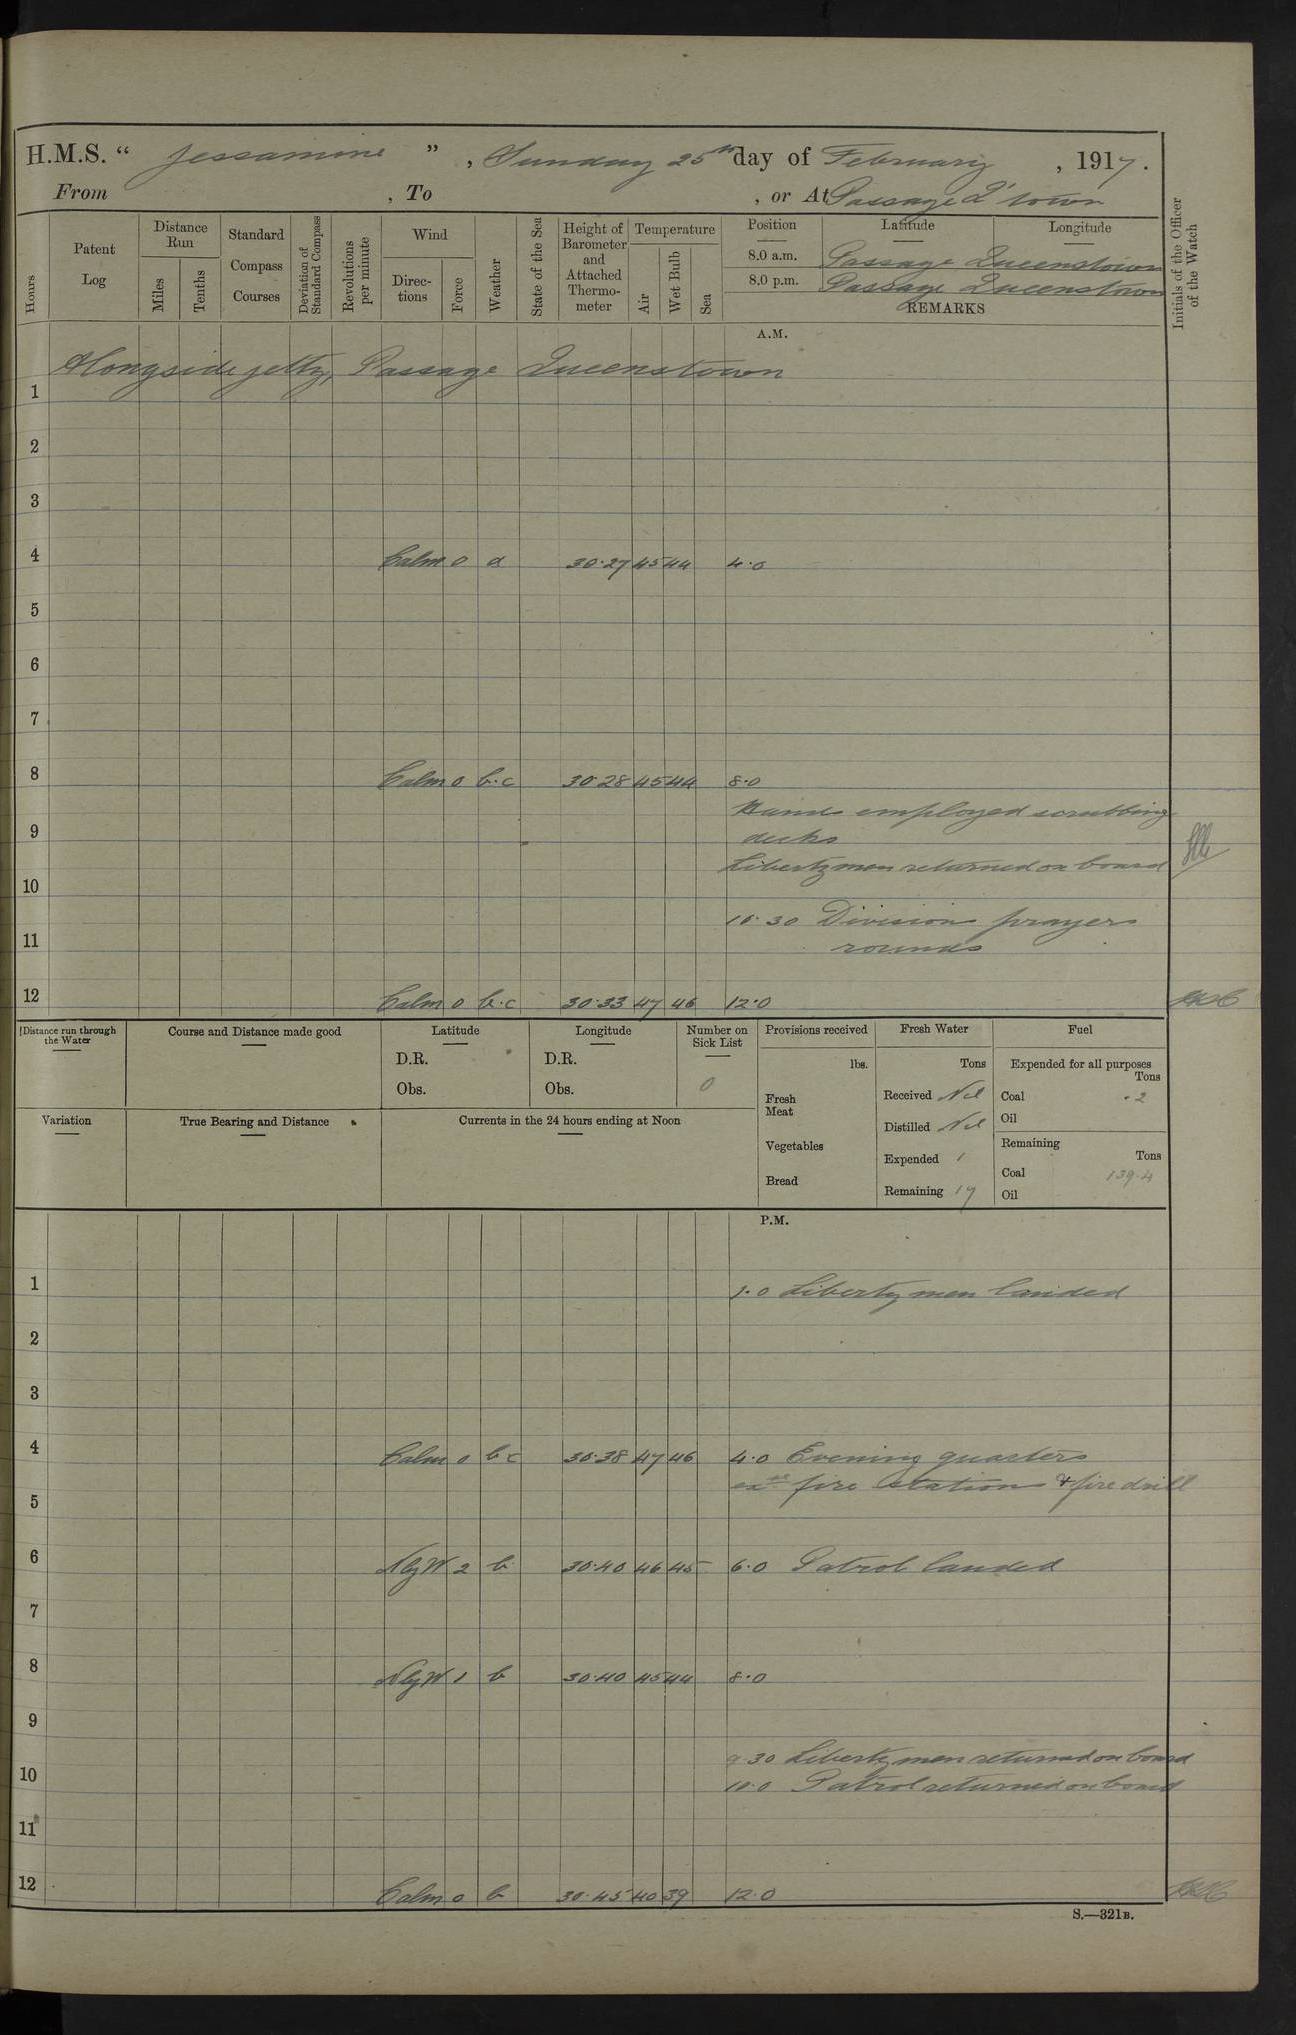 H.M.S. " Jessamine " , Sunday 25th day of February , 1917 .
From , To , or At Passage Q'town
Hours
Patent Log
Distance Run
Miles
Tenths
Standard Compass Courses
Deviation of Standard Compass
Revolutions per minute
Wind
Directions
Force
Weather
State of the Sea
Height of Barometer and Attached Thermometer
Temperature
Air
Wet Bulb
Sea
Position Latitude Longitude
8.0 a.m. Passage Queenstown
8.0 p.m. Passage Queenstown
REMARKS
Initials of the Officer of the Watch
A.M.
Alongside jetty, Passage Queenstown
1
2
3
4 Calm 0 d 30·27 45 44 4·0
5
6
7
8 Calm 0 b.c 30·28 45 44 8·0
Hands employed scrubbing
9 decks
Liberty men returned on board
10
10·30 Division prayers
11 rounds
12 Calm 0 b.c 30·33 47 46 12·0
Distance run through the Water
Course and Distance made good
Latitude
D.R.
Obs.
Longitude
D.R.
Obs.
Number on Sick List
0
Variation
True Bearing and Distance
Currents in the 24 hours ending at Noon
Provisions received
lbs.
Fresh Meat
Vegetables
Bread
Fresh Water
Tons
Received Nil
Distilled Nil
Expended 1
Remaining 17
Fuel
Expended for all purposes
Tons
Coal ·2
Oil
Remaining
Tons
Coal 139·4
Oil
P.M.
1 1·0 Liberty men landed
2
3
4 Calm 0 b c 30·38 47 46 4·0 Evening quarters
fire stations & fire drill
5
6 NbyW 2 b 30·40 46 45 6·0 Patrol landed
7
8 NbyW 1 b 30·40 45 44 8·0
9
9·30 Liberty men returned on board
10 10·0 Patrol returned on board
11
12 Calm 0 b 30·45 40 39 12·0
S.—321B.